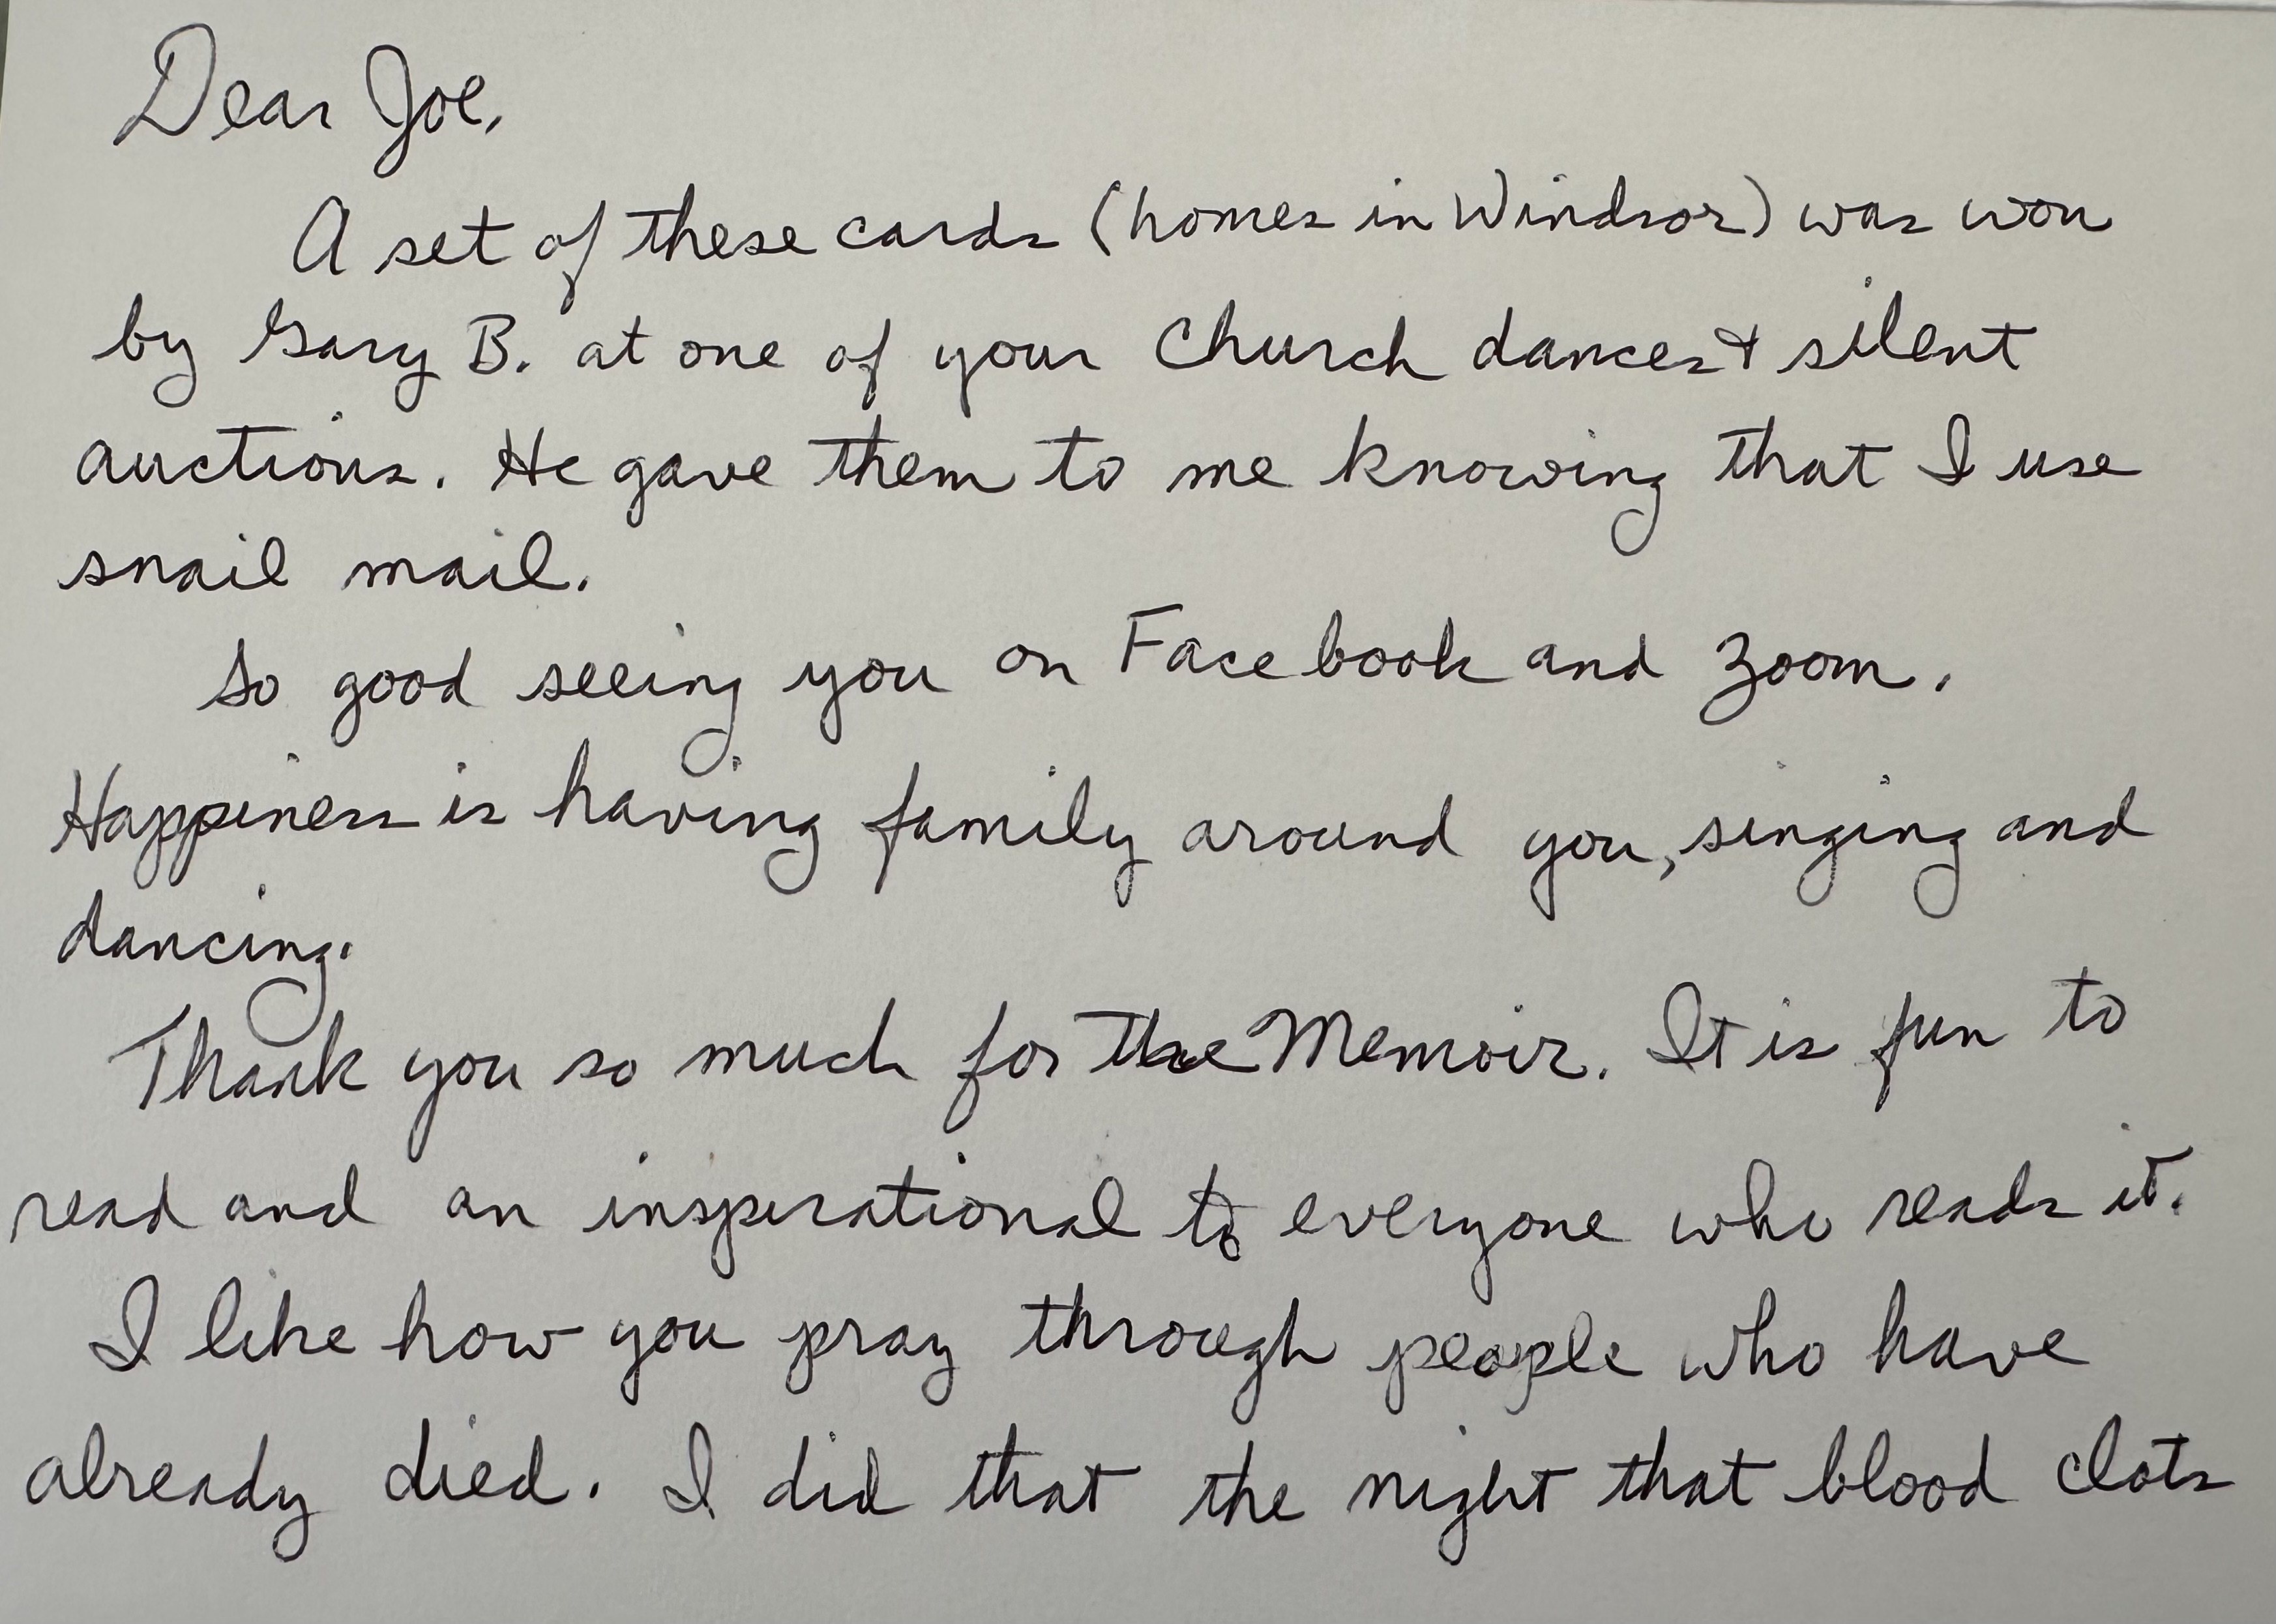 Dear Joe,
A set of these cards (homes in Windsor) was won
by Gary B. at one of your Church dances & silent
auctions. He gave them to me knowing that I use
snail mail.
So good seeing you on Facebook and Zoom.
Happiness is having family around you, singing and
dancing.
Thank you so much for the Memoir. It is fun to
read and an inspirational to everyone who reads it.
I like how you pray through people who have
already died. I did that the night that blood clots